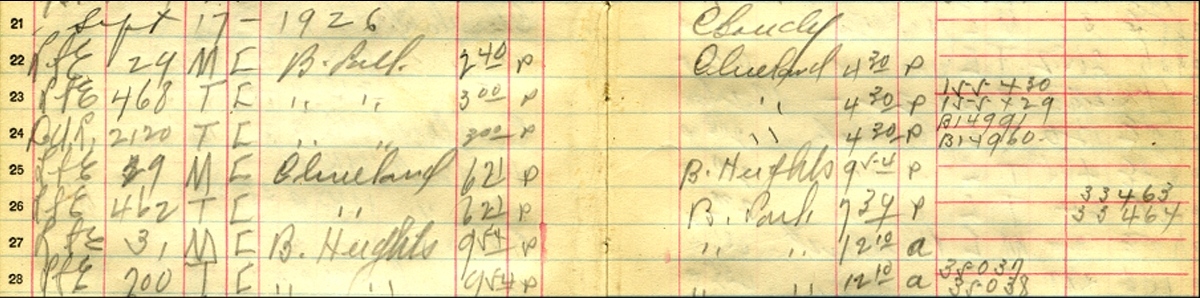 21 Sept 17 - 1926 Cloudy
22 PfE 29 M E B. Park. 2 40 P Cleveland 4 30 P
23 PfE 468 T E " " 3 00 P " 4 30 P 155430 155429
24 2120 T E " " 3 00 P " 4 30 P B14991 B14960.
25 PfE 29 M E Cleveland 6 21 P B. Heights 9 54 P
26 PfE 462 T E " 6 21 P B. Park 7 39 P 33463 33464
27 PfE 31 M E B. Heights 9 54 P " " 12 10 a
28 PfE 200 T E " " 9 54 P " " 12 10 a 35037 35038